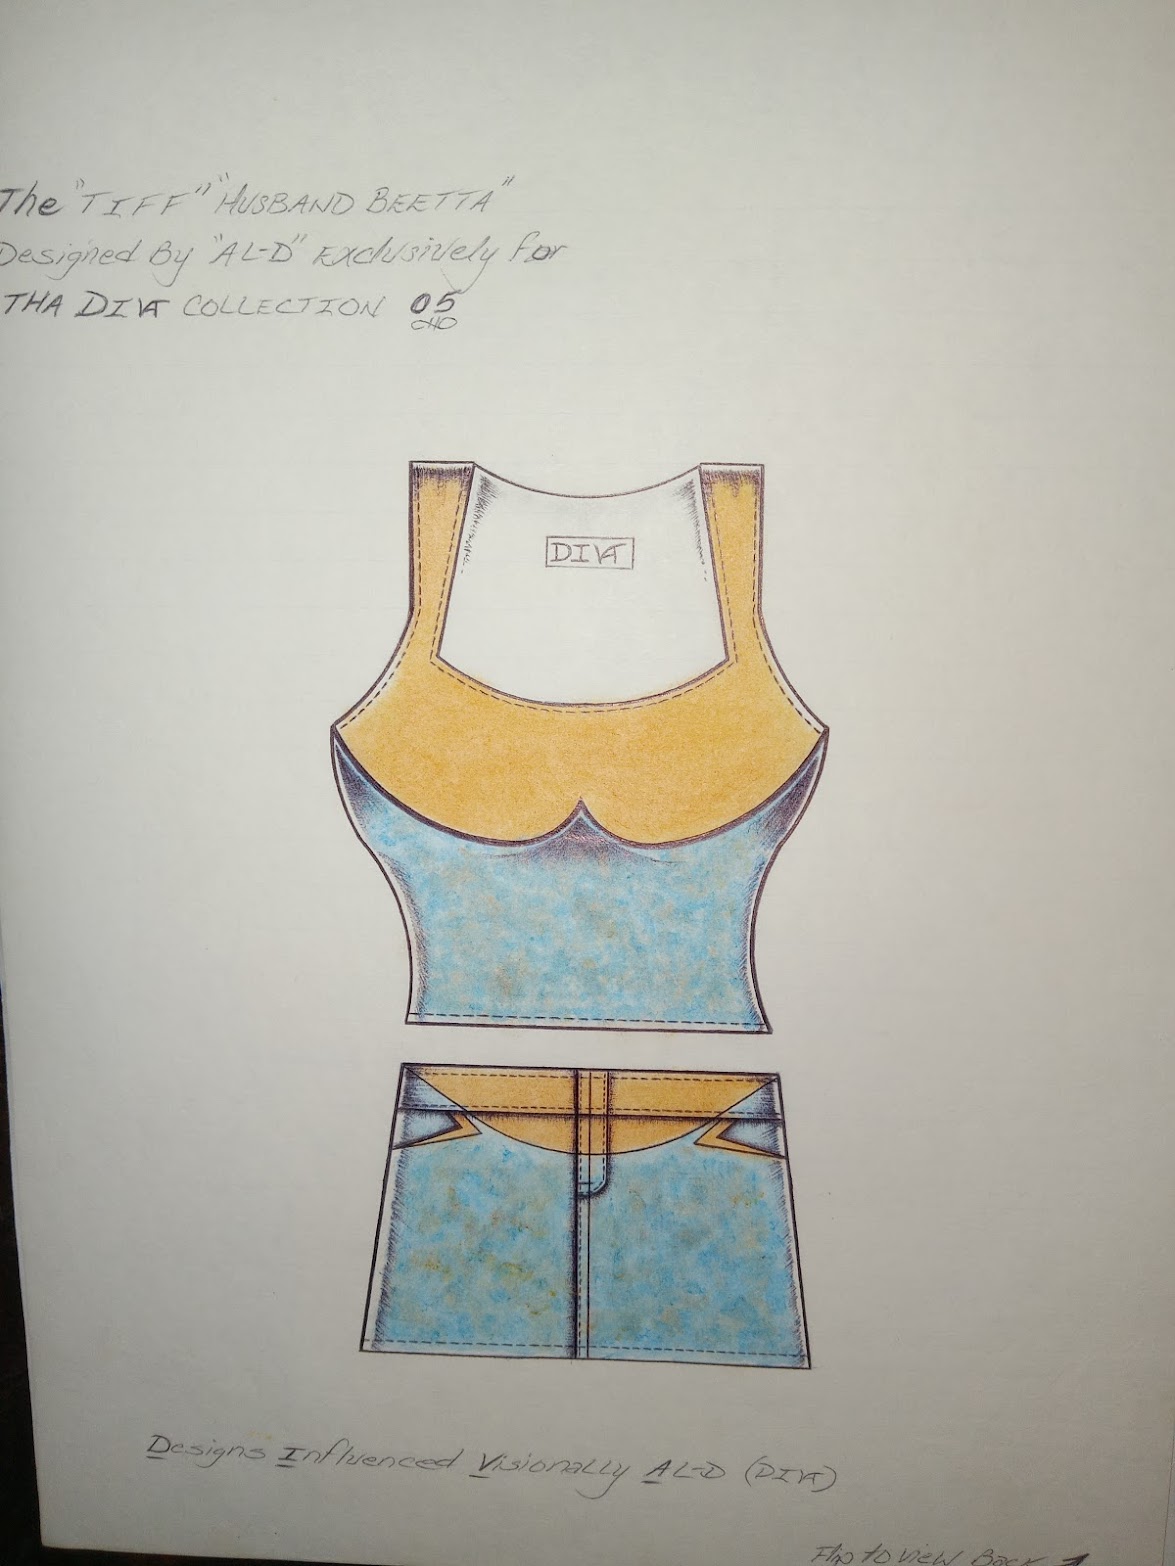 The "TIFF" "HUSBAND BEETTA"
Designed By "AL-D" Exclusively for
THA DIVA COLLECTION 05
DIVA
Designs Influenced Visionally AL-D (DIVA)
Flip to view Back